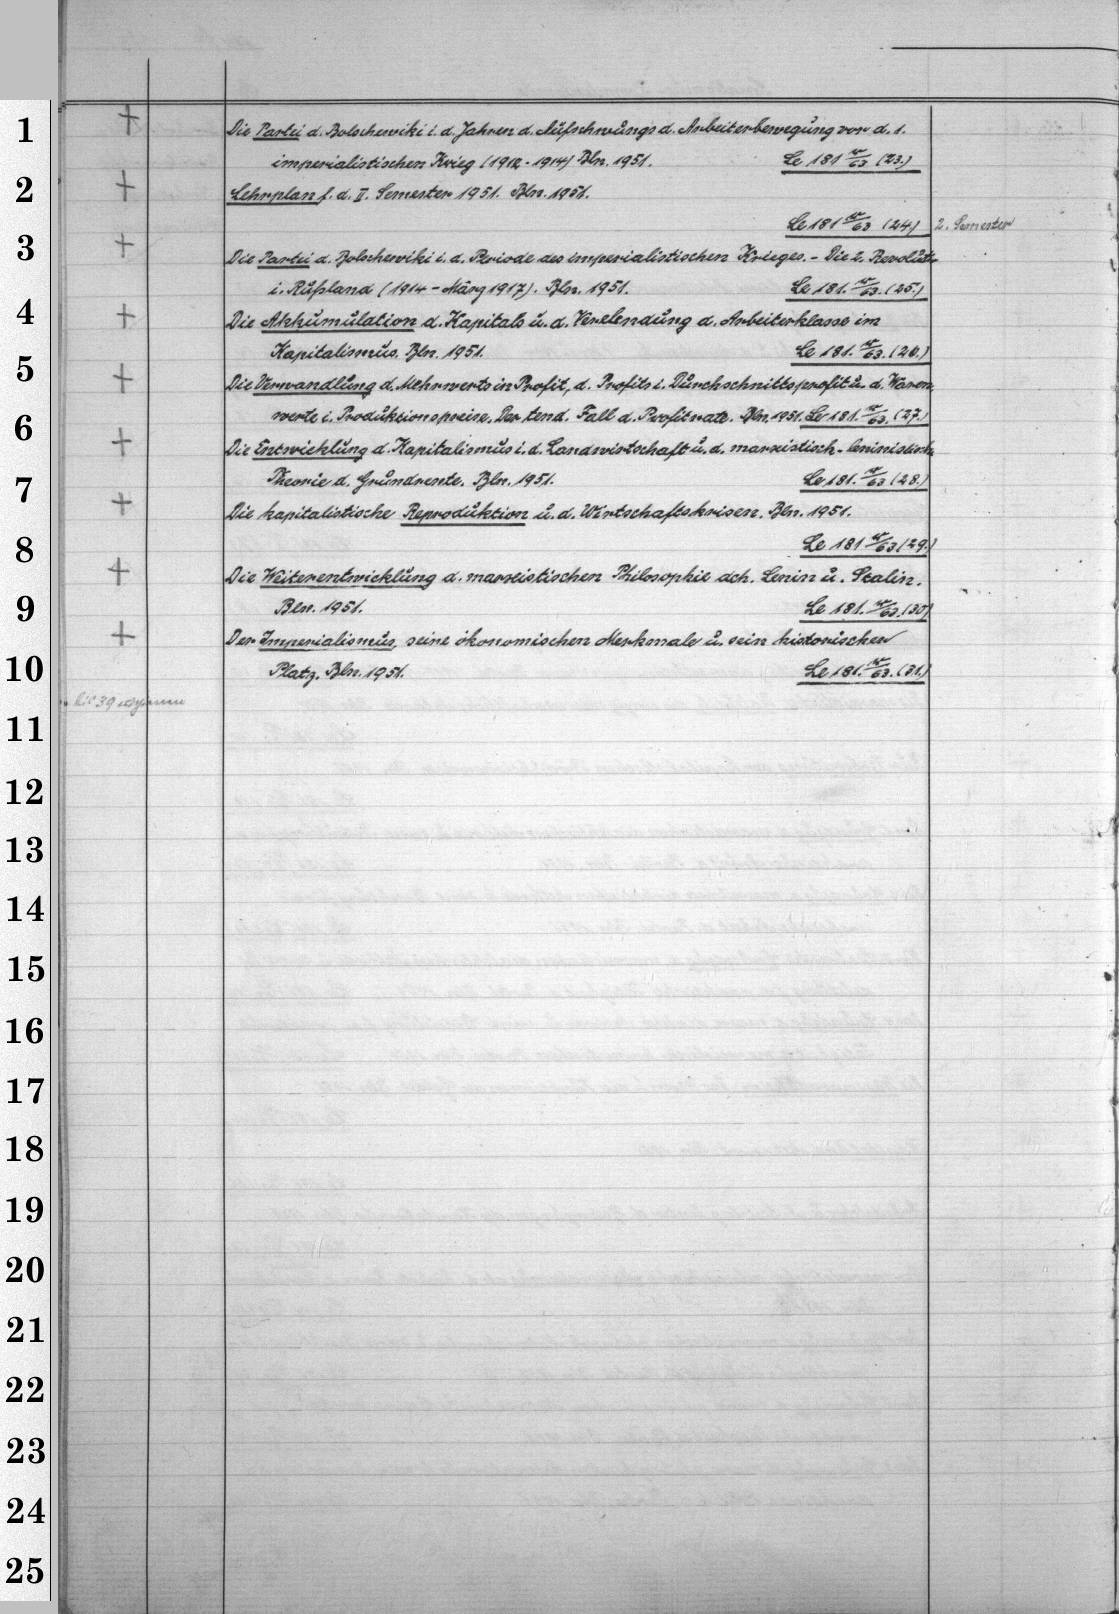 1 + Die Partei d. Bolschewiki i. d. Jahren d. Aufschwungs d. Arbeiterbewegung vor d. 1.
imperialistischen Krieg (1912-1914) Bln. 1951. Le 181 w/63 (23.)
2 + Lehrplan f. d. II. Semester 1951. Bln. 1951.
Le 181 w/63 (24) 2. Semester
3 + Die Partei d. Bolschewiki i. d. Periode des imperialistischen Krieges. - Die 2. Revolut.
i. Rußland (1914 - März 1917). Bln. 1951. Le 181. w/63. (25.)
4 + Die Akkumulation d. Kapitals u. d. Verelendung d. Arbeiterklasse im
Kapitalismus. Bln. 1951. Le 181. w/63. (26.)
5 + Die Verwandlung d. Mehrwerts in Profit, d. Profits i. Durchschnittsprofit u. d. Waren
werte i. Produktionspreise. Der tend. Fall d. Profitrate. Bln. 1951. Le 181. w/63. (27.)
6 + Die Entwicklung d. Kapitalismus i. d. Landwirtschaft u. d. marxistisch-leninistisch.
7 Theorie d. Grundrente. Bln. 1951. Le 181. w/63 (28.)
+ Die kapitalistische Reproduktion u. d. Wirtschaftskrisen. Bln. 1951.
8 Le 181 w/63 (29.)
+ Die Weiterentwicklung d. marxistischen Philosophie dch. Lenin u. Stalin.
9 Bln. 1951. Le 181. w/63. (30)
+ Der Imperialismus, seine ökonomischen Merkmale u. sein historischer
10 Platz. Bln. 1951. Le 181. w/63. (31.)
bis 39
11
12
13
14
15
16
17
18
19
20
21
22
23
24
25